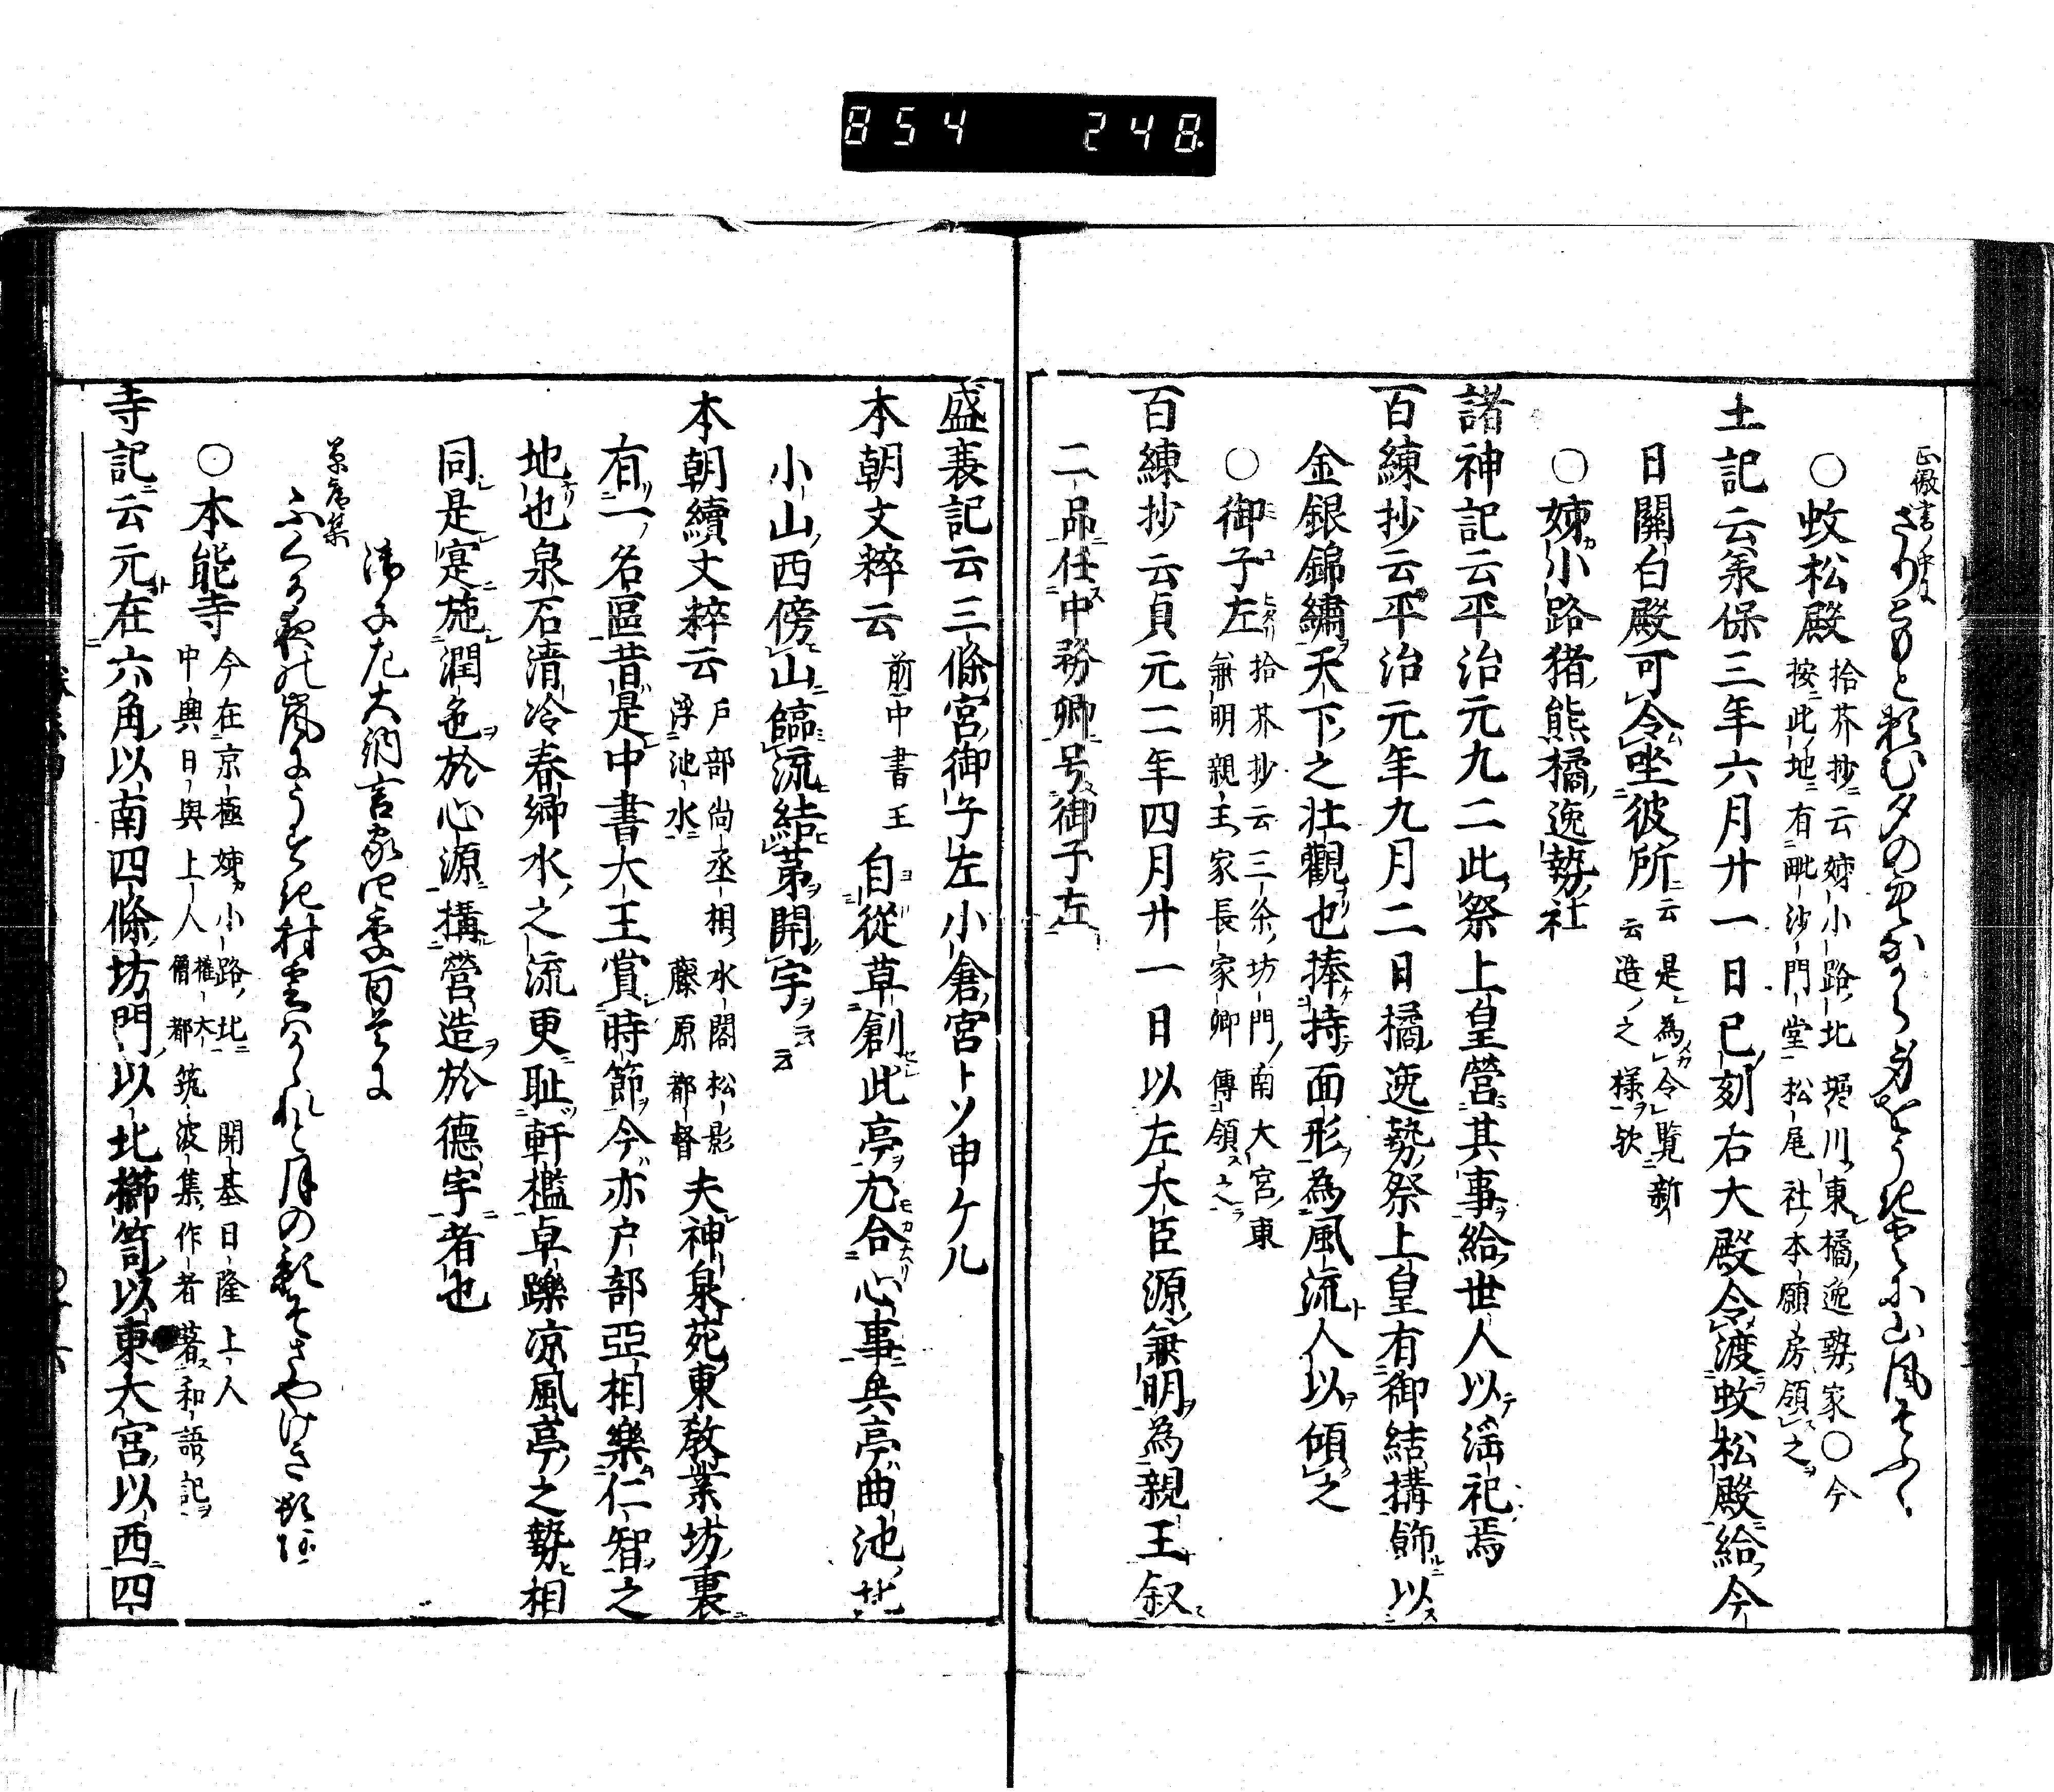 854 248
さりともと頼む夕の
○蚊松殿 拾芥抄云姉小路北堀川東橘逸勢家○今
按此地有毗沙門堂松尾社本願房領之
土記云承保三年六月廿一日巳刻右大殿令渡蚊松殿給今
日關白殿可令坐彼所云云是為令覧新
造之様欤
○姉小路猪熊橘逸勢社
諸神記云平治元九二此祭上皇營其事給世人以淫祀焉
百練抄云平治元年九月二日橘逸勢祭上皇有御結構飾以
金銀錦繡天下之壮觀也捧持面形為風流人以傾之
○御子左 拾芥抄云三条坊門南大宮東
兼明親王家長家卿傳領之
百練抄云貞元二年四月廿一日以左大臣源兼明為親王叙
二品任中務卿号御子左
盛衰記云三條宮御子左小倉宮トソ申ケル
本朝文粹云 前中書王 自從草創此亭尤合心事兵亭曲池北
小山西傍山臨流結茅開宇云云
本朝續文粹云 戸部尚丞相水閣松影
浮池水 藤原都督 夫神泉苑東教業坊裏
有一名區昔是中書大王賞時節今亦戸部亞相樂仁智之
地也泉石清冷春歸水之流更耻軒檻卓躒凉風亭之勢相
同是寔施潤色於心源構營造於德宇者也
草庵集 御子左大納言家四季百首に
○本能寺 今在京極姉小路北 開基日隆上人
中興日與上人 權大僧都 筑波集作者著和語記
寺記云元在六角以南四條坊門以北櫛笥以東大宮以西四